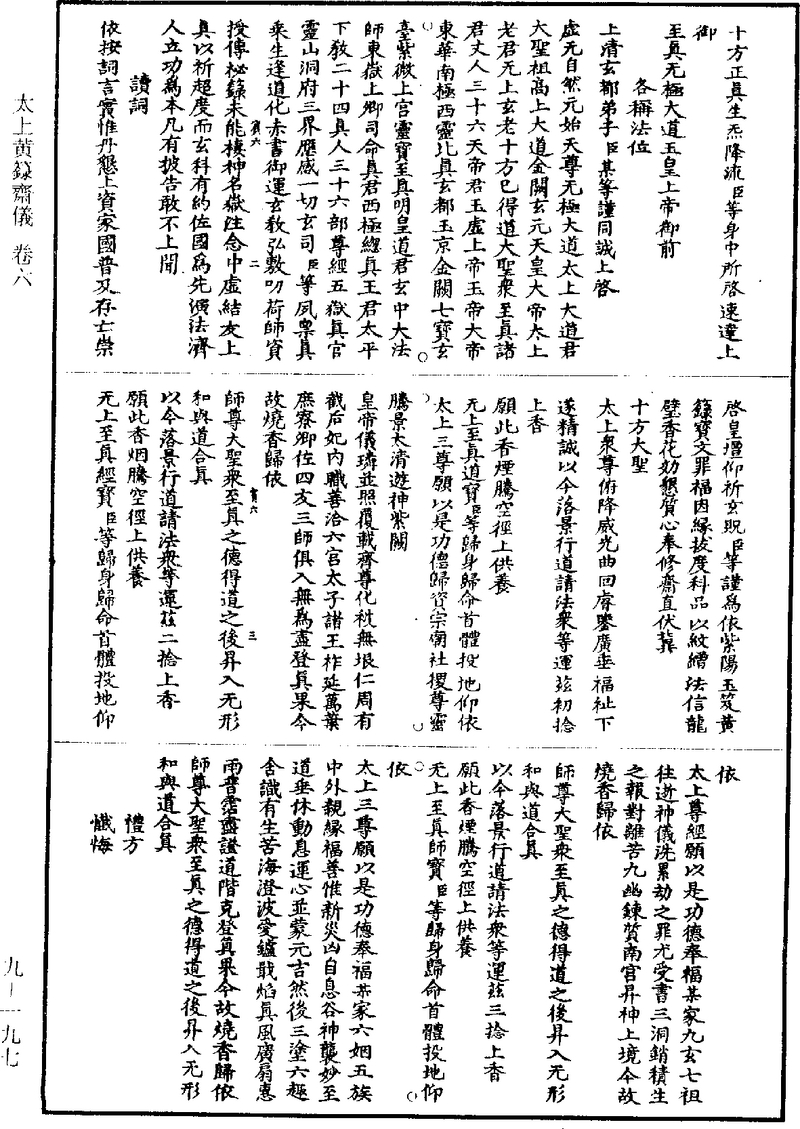 十方正真生炁降流臣等身中所啓速達上
御
至真无極大道玉皇上帝御前
各稱法位
上清玄都弟子臣某等謹同誠上啓
虛无自然元始天尊无極大道太上大道君
大聖祖高上大道金闕玄元天皇大帝太上
老君无上玄老十方已得道大聖衆至真諸
君丈人三十六天帝君玉虛上帝玉帝大帝
東華南極西靈北真玄都玉京金闕七寶玄
臺紫微上宮靈寶至真明皇道君玄中大法
師東嶽上卿司命真君西極總真王君太平
下教二十四真人三十六部尊經五嶽真官
靈山洞府三界應感一切玄司臣等夙禀真
乘生逢道化赤書御運玄教弘敷叨荷師資
賓六
二
授傳秘籙未能棲神名嶽注念中虛結友上
真以祈超度而玄科有約佐國爲先演法濟
人立功爲本凡有披告敢不上聞
讀詞
依按詞言實惟丹懇上資家國普及存亡崇
啓皇壇仰祈玄貺臣等謹爲依紫陽玉笈黄
籙寶文罪福因緣拔度科品以紋繒法信龍
璧香花効懇質心奉修齋直伏冀
十方大聖
太上衆尊俯降威光曲回睿鑒廣垂福祉下
遂精誠以今落景行道請法衆等運兹初捻
上香
願此香煙騰空徑上供養
无上至真道寶臣等歸身歸命首體投地仰依
太上三尊願以是功德歸資宗廟社稷尊靈
騰景太清遊神紫闕
皇帝儀璘並照覆載齊尊化袵無垠仁周有
截后妃内職善洽六宮太子諸王祚延萬葉
庶寮卿佐四友三師俱入無爲盡登真果今
故燒香歸依
賓六
三
師尊大聖衆至真之德得道之後昇入无形
和與道合真
以今落景行道請法衆等運兹二捻上香
願此香烟騰空徑上供養
无上至真經寶臣等歸身歸命首體投地仰
依
太上尊經願以是功德奉福某家九玄七祖
往逝神儀洗累劫之罪尤受書三洞銷積生
之報對離苦九幽鍊質南宮昇神上境今故
燒香歸依
師尊大聖衆至真之德得道之後昇入无形
和與道合真
以今落景行道請法衆等運兹三捻上香
願此香煙騰空徑上供養
无上至真師寶臣等歸身歸命首體投地仰
依
太上三尊願以是功德奉福某家六姻五族
中外親緣福善惟新災凶自息谷神襲妙至
道垂休動息運心並蒙元吉然後三塗六趣
含識有生苦海澄波愛鑪戢焰真風廣扇惠
雨普霑盡證道階克登真果今故燒香歸依
師尊大聖衆至真之德得道之後昇入无形
和與道合真
禮方
懺悔
太上黄籙齋儀 卷六
九—一九七